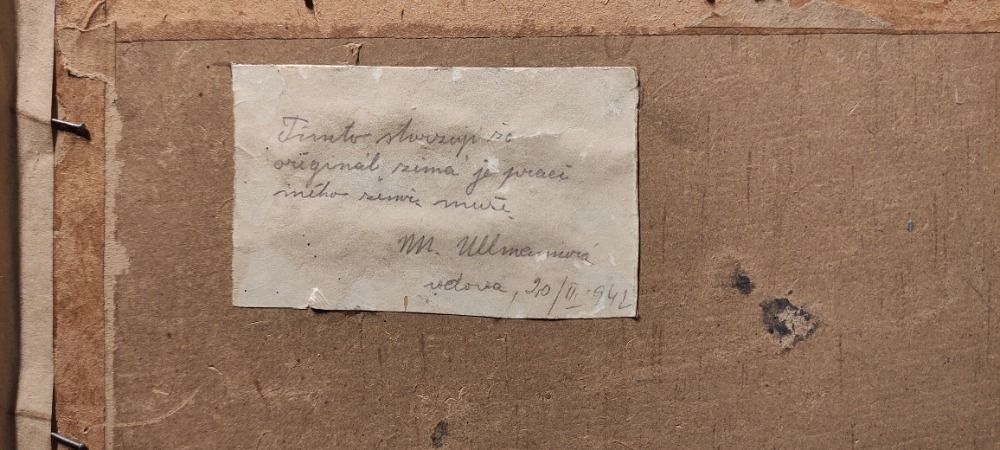 Tímto stvrzuji že
originál „zima" je prací
mého zemř. muže.
M. Ullmannová
vdova, 20/II. 942